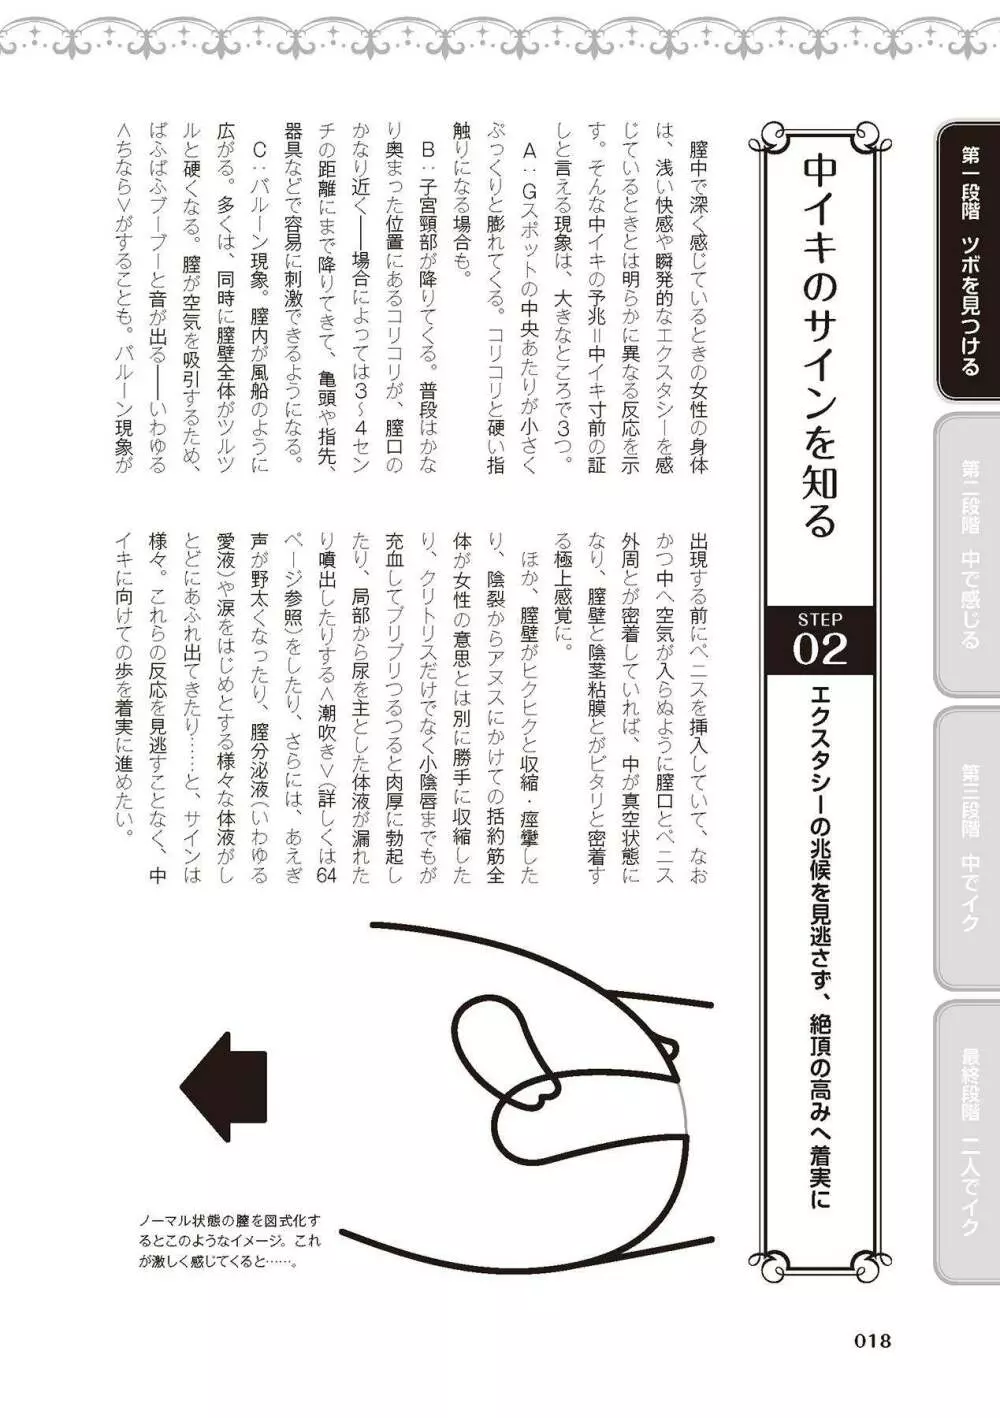 第一段階 ツボを見つける
第二段階 中で感じる
第三段階 中でイク
最終段階 二人でイク
中イキのサインを知る
STEP
02
エクスタシーの兆候を見逃さず、絶頂の高みへ着実に
膣中で深く感じているときの女性の身体
は、浅い快感や瞬発的なエクスタシーを感
じているときとは明らかに異なる反応を示
す。そんな中イキの予兆＝中イキ寸前の証
しと言える現象は、大きなところで3つ。
A：Gスポットの中央あたりが小さく
ぷっくりと膨れてくる。コリコリと硬い指
触りになる場合も。
B：子宮頸部が降りてくる。普段はかな
り奥まった位置にあるコリコリが、膣口の
かなり近く──場合によっては3～4セン
チの距離にまで降りてきて、亀頭や指先、
器具などで容易に刺激できるようになる。
C：バルーン現象。膣内が風船のように
広がる。多くは、同時に膣壁全体がツルツ
ルと硬くなる。膣が空気を吸引するため、
ぱふぱふブーブーと音が出る──いわゆる
<ちなら>がすることも。バルーン現象が
出現する前にペニスを挿入していて、なお
かつ中へ空気が入らぬように膣口とペニス
外周とが密着していれば、中が真空状態に
なり、膣壁と陰茎粘膜とがピタリと密着す
る極上感覚に。
ほか、膣壁がヒクヒクと収縮・痙攣した
り、陰裂からアヌスにかけての括約筋全
体が女性の意思とは別に勝手に収縮した
り、クリトリスだけでなく小陰唇までもが
充血してプリプリつるつると肉厚に勃起し
たり、局部から尿を主とした体液が漏れた
り噴出したりする<潮吹き>(詳しくは64
ページ参照)をしたり、さらには、あえぎ
声が野太くなったり、膣分泌液(いわゆる
愛液)や涙をはじめとする様々な体液がし
とどにあふれ出てきたり……と、サインは
様々。これらの反応を見逃すことなく、中
イキに向けての歩を着実に進めたい。
ノーマル状態の膣を図式化す
るとこのようなイメージ。これ
が激しく感じてくると……。
018